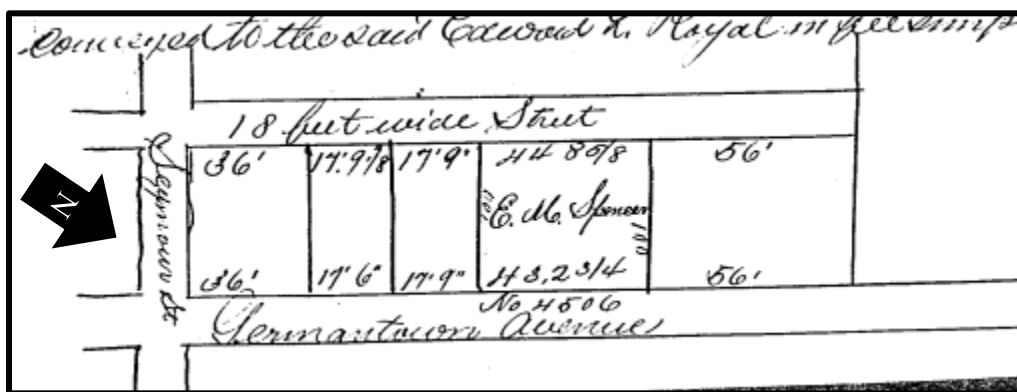 conveyed to the said Edward L. Royal in fee simp
18 feet wide Street
36' 17'.9⅛ 17'9" 44 8 5/8 56'
Seymour St
N
100 E. M. Spencer 100
36' 17'6" 17'9" 43,2 3/4 56'
No 4506
Germantown Avenue